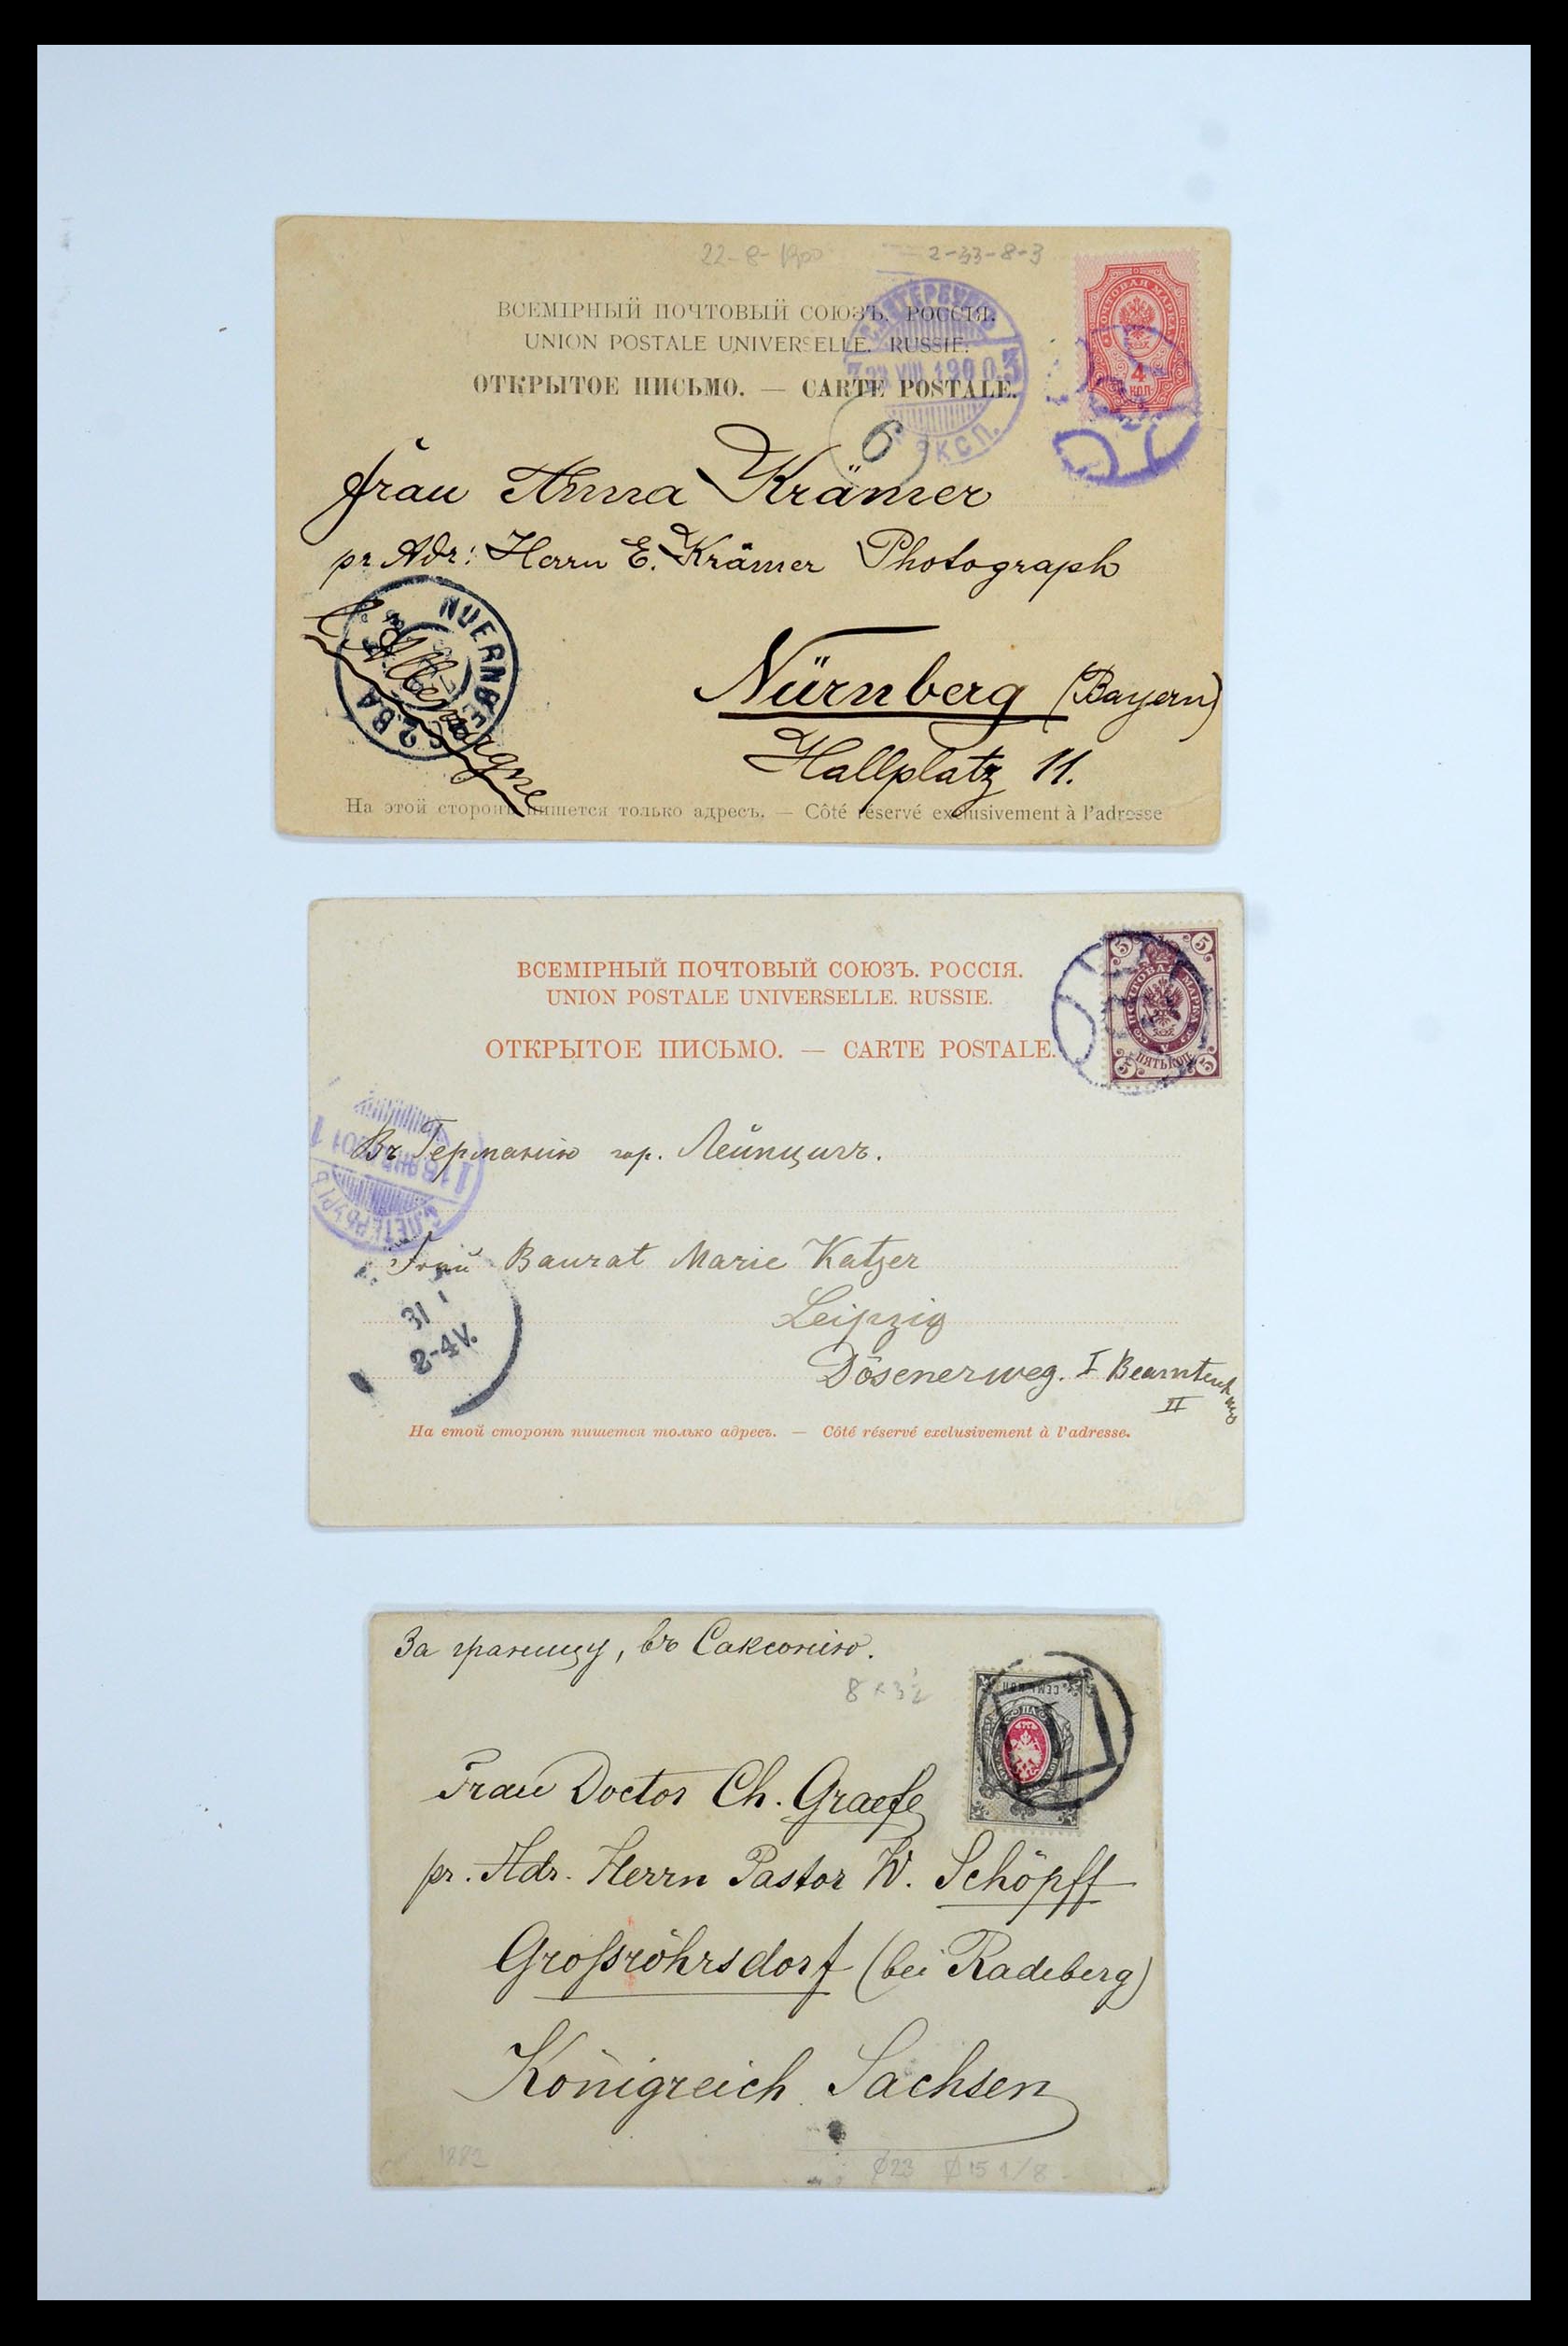 22-8-1900
2-33-8-3
ВСЕМІРНЫЙ ПОЧТОВЫЙ СОЮЗЪ. РОССІЯ.
UNION POSTALE UNIVERSELLE. RUSSIE.
ОТКРЫТОЕ ПИСЬМО. — CARTE POSTALE.
С.ПЕТЕРБУРГЪ
3 VIII 1900 3
ЭКСП.
ПОЧТОВАЯ МАРКА
4
КОП.
6
Frau Anna Krämer
pr. Adr: Herrn E. Krämer Photograph
NUERNBERG
2.BA
Allemagne
Nürnberg (Bayern)
Hallplatz 11.
На этой сторонѣ пишется только адресъ. — Côté réservé exclusivement à l'adresse
ВСЕМІРНЫЙ ПОЧТОВЫЙ СОЮЗЪ. РОССІЯ.
UNION POSTALE UNIVERSELLE. RUSSIE.
ОТКРЫТОЕ ПИСЬМО. — CARTE POSTALE.
5 5
ПОЧТОВАЯ МАРКА
ПЯТЬ КОП.
5 5
Въ Германію гор. Лейпцигъ.
С.ПЕТЕРБУРГЪ
Frau Baurat Marie Katzer
31 1
2-4V.
Leipzig
Dösenerweg. I Beamtenhaus
II
На етой сторонѣ пишется только адресъ. — Côté réservé exclusivement à l'adresse.
За границу, въ Саксонію.
8 x 3½
СЕМЬ КОП.
Frau Doctor Ch. Graefe
pr. Adr. Herrn Pastor W. Schöpff
Großröhrsdorf (bei Radeberg)
Königreich Sachsen
1882
23 15 1/8